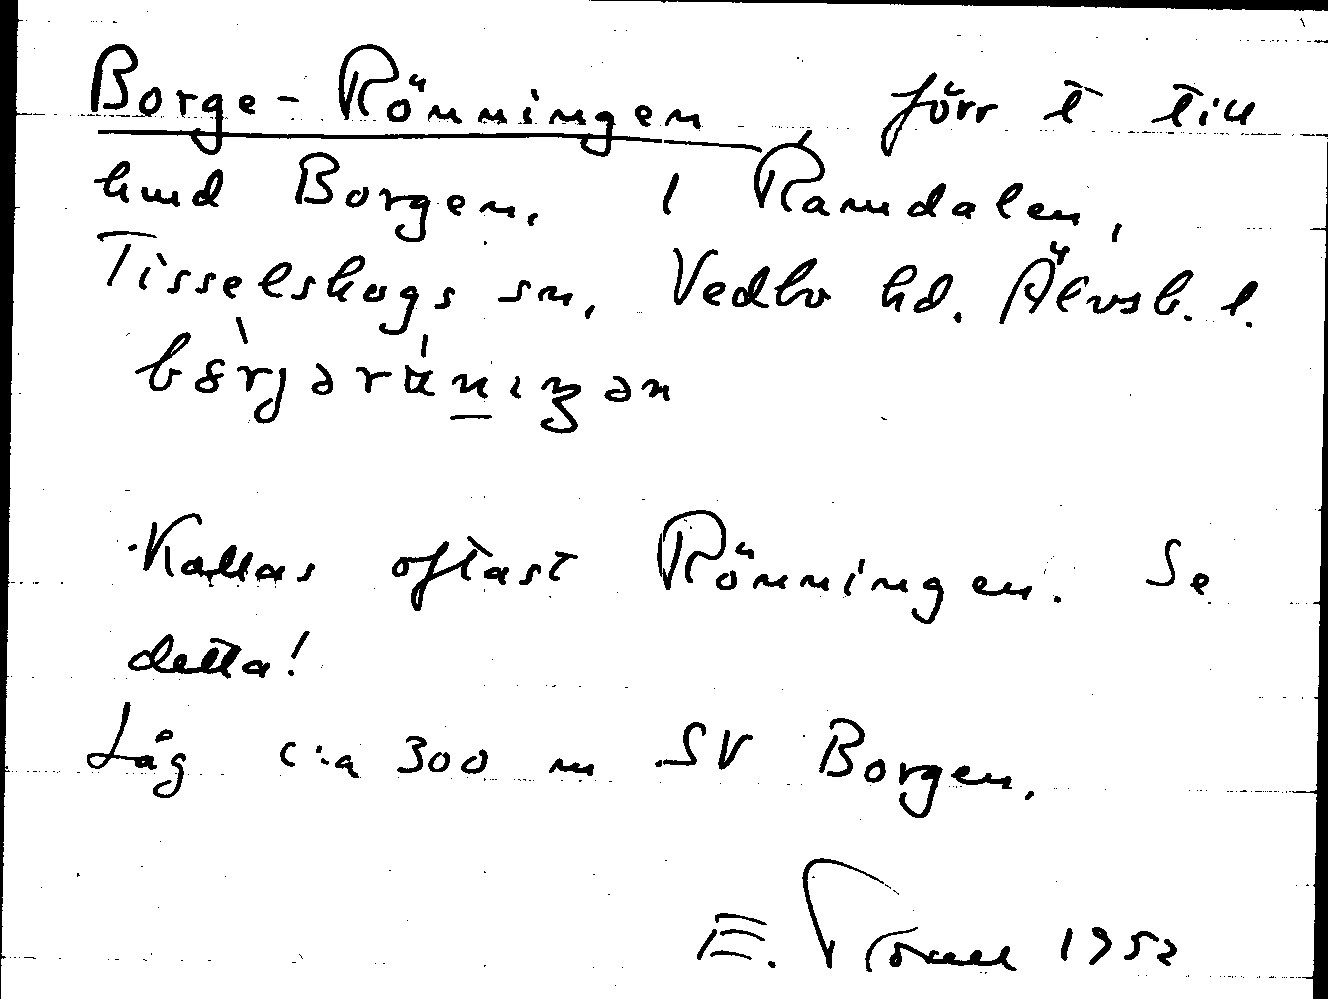 Borge-Rönningen, förr t till
hmd Borgen, i Ramdalen,
Tisselskogs sn, Vedbo hd. Älvsb. l.
Kallas oftast Rönningen. Se
detta!
Låg c:a 300 m SV Borgen.
E. 1952